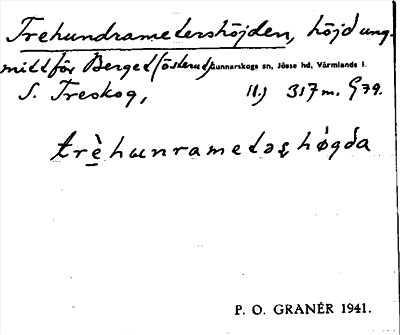 Trehundrametershöjden, höjd ung.
mittför Berget (österut) Gunnarskogs sn, Jösse hd, Värmlands l.
S. Treskog, 317 m. G 79.
trèhunrametəshǿgda
P. O. GRANÉR 1941.